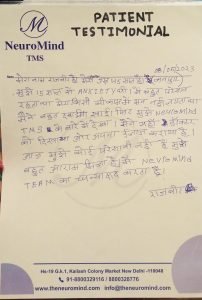 NeuroMind
TMS
PATIENT
TESTIMONIAL
08/05/2023
मेरा नाम राजबीर है मेरी उम्र
मुझे 15 साल से ANXIETY थी मैं बहुत परेशान
रहता था मेरा किसी भी काम में मन नहीं लगता था
मैंने बहुत दवाई खाई फिर मुझे NEUROMIND
TMS के बारे में पता । मैंने यहाँ डॉक्टर
को दिखाया और अपना इलाज कराया है ।
आज मुझे कोई परेशानी नहीं है मुझे
बहुत आराम मिला है। मैं NEUROMIND
TEAM का धन्यवाद करता हूँ
राजबीर
Hs-19 G.k.1, Kailash Colony Market New Delhi -110048
91-8800329116 / 8800326776
www.theneuromind.com info@theneuromind.com